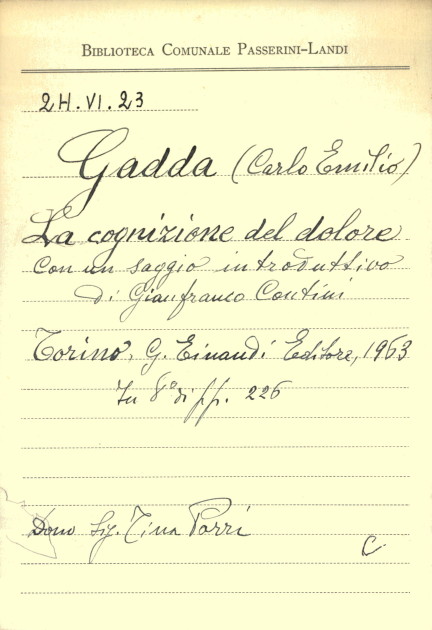 BIBLIOTECA COMUNALE PASSERINI-LANDI
2H.VI.23
Gadda (Carlo Emilio)
La cognizione del dolore
con un saggio introduttivo
di Gianfranco Contini
Torino, G. Einaudi Editore, 1963
In 8° di pp. 226
Dono Sig. Tina Parri
C